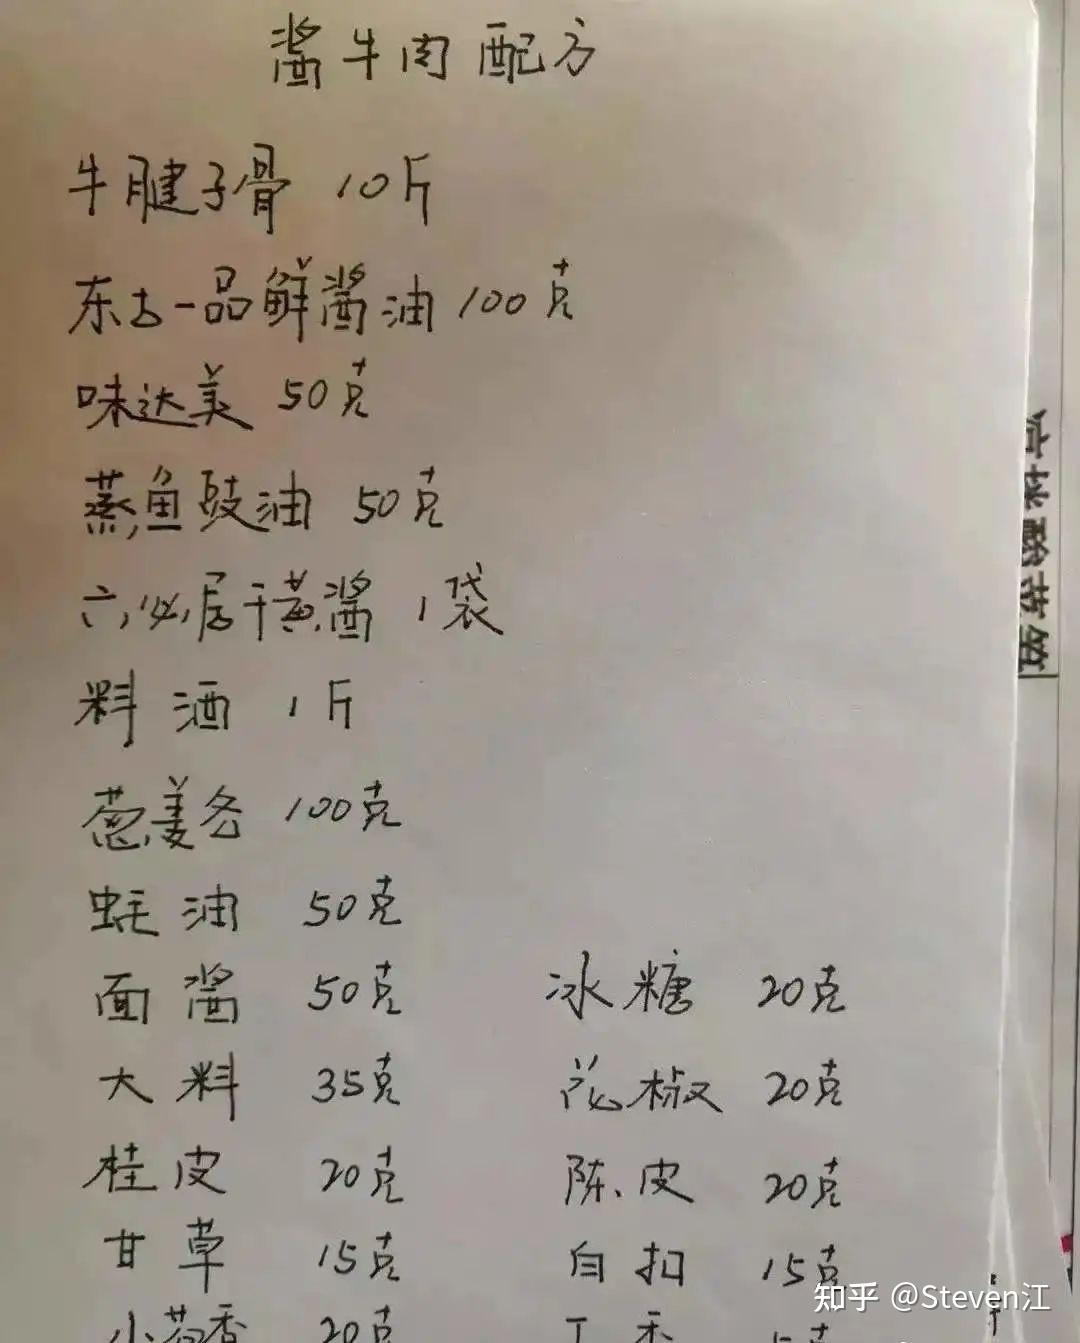 酱牛肉配方
牛腱子骨 10斤
东古一品鲜酱油 100克
味达美 50克
蒸鱼豉油 50克
六必居干黄酱 1袋
料酒 1斤
葱姜各 100克
蚝油 50克
面酱 50克 冰糖 20克
大料 35克 花椒 20克
桂皮 20克 陈皮 20克
甘草 15克 白扣 15克
小茴香 20克 丁香 5克
知乎 @Steven江